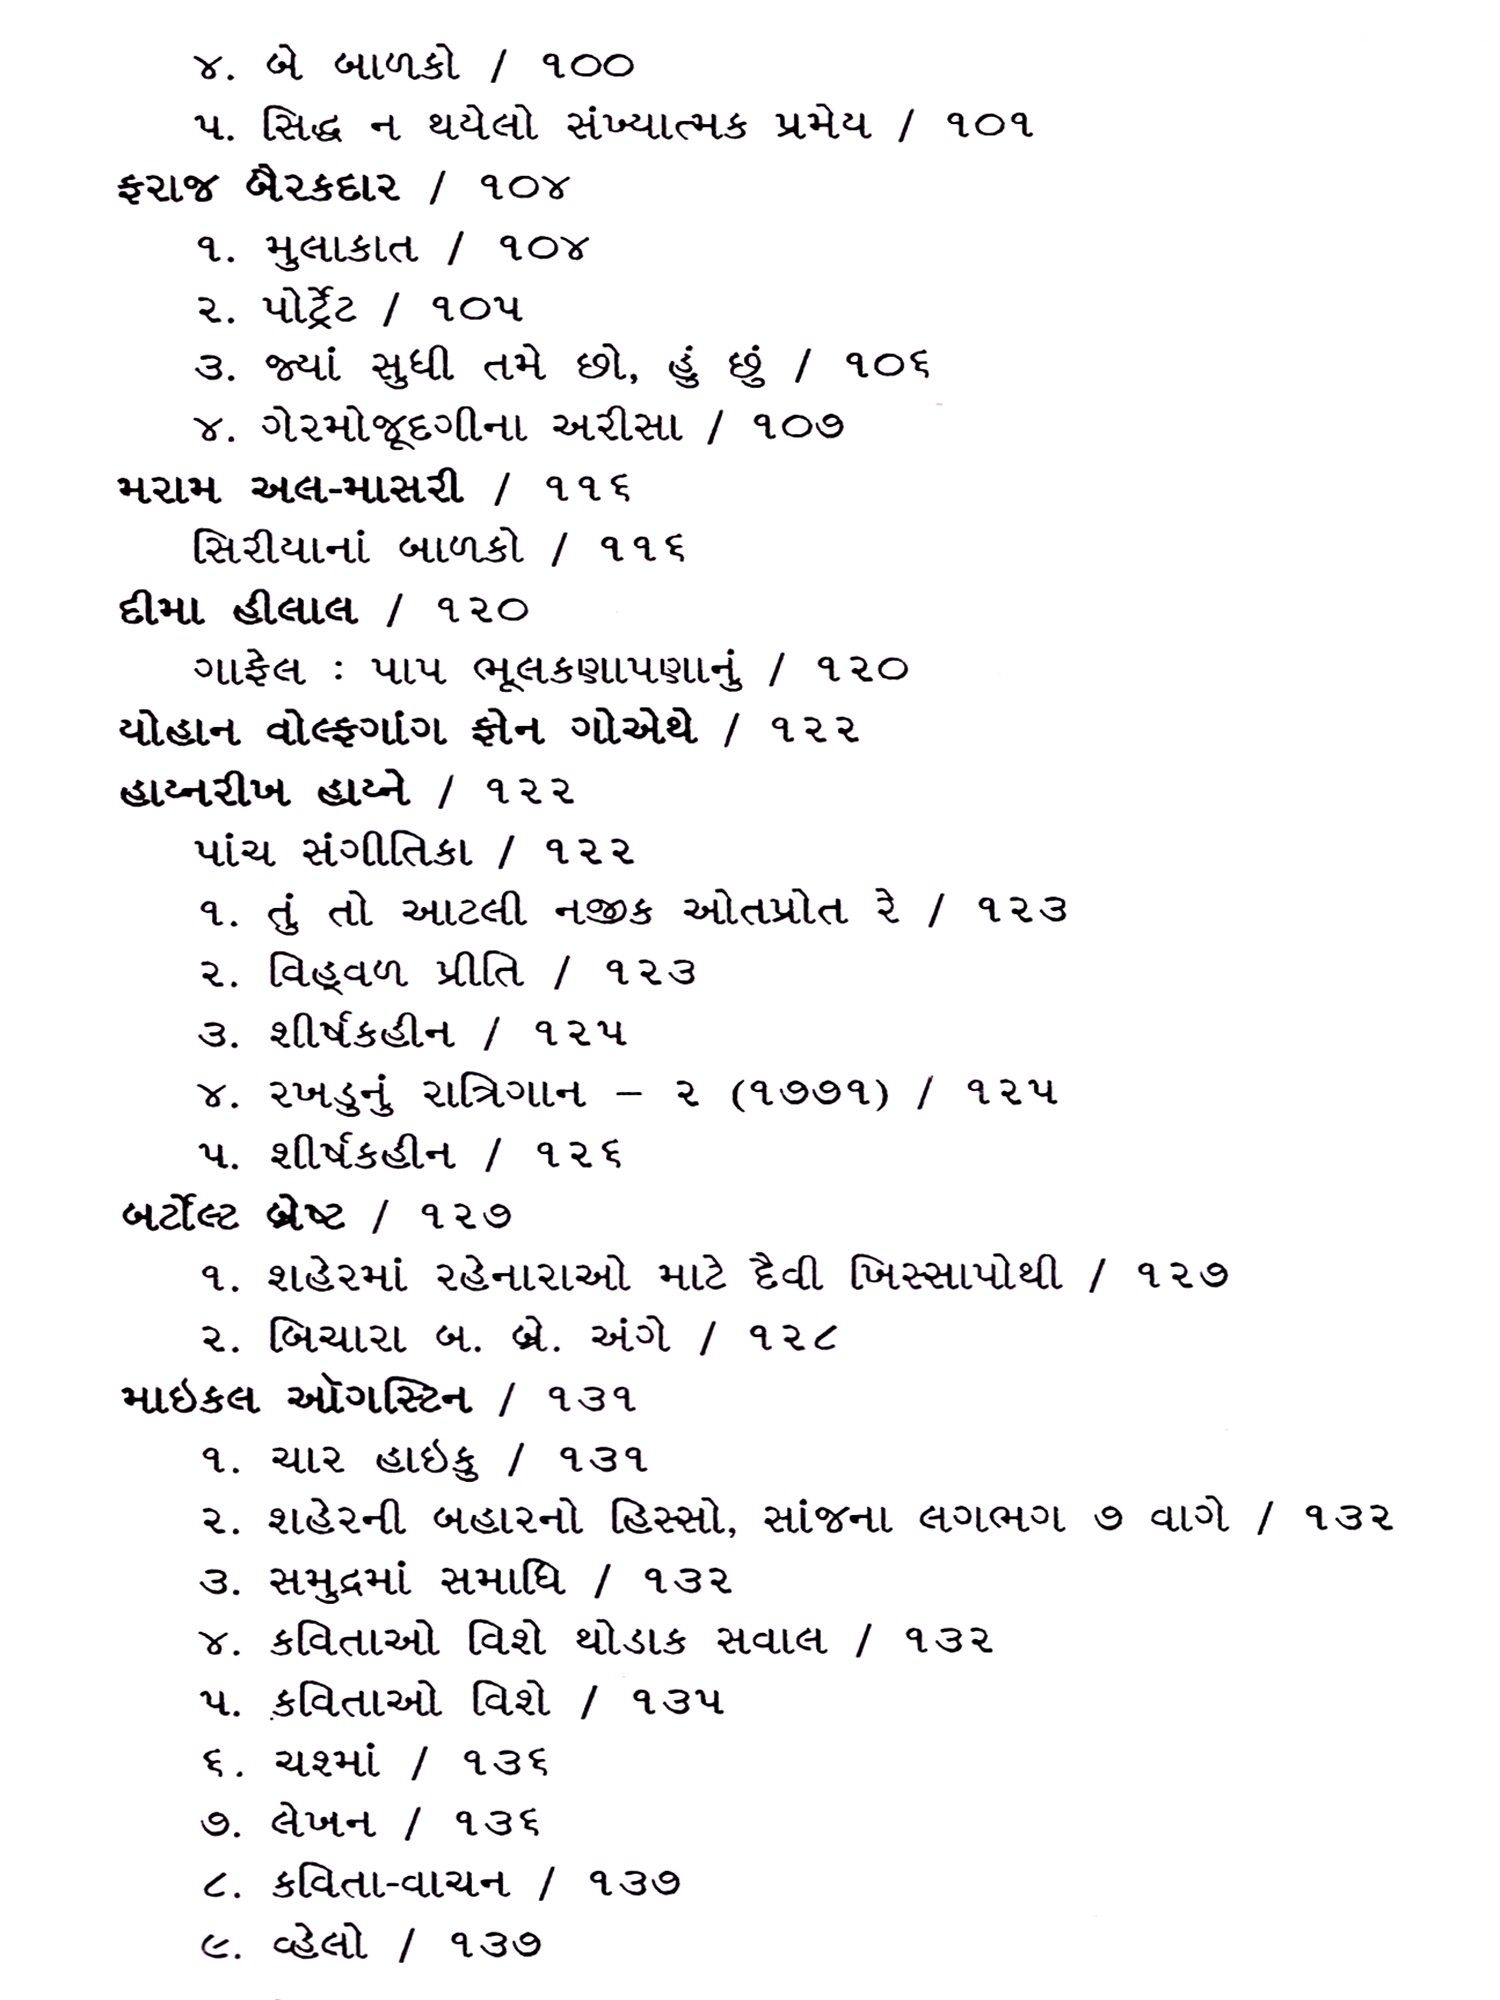 ૪. બે બાળકો / ૧૦૦
૫. સિદ્ધ ન થયેલો સંખ્યાત્મક પ્રમેય / ૧૦૧
ફરાજ બૈરકદાર / ૧૦૪
૧. મુલાકાત / ૧૦૪
૨. પોર્ટ્રેટ / ૧૦૫
૩. જ્યાં સુધી તમે છો, હું છું / ૧૦૬
૪. ગેરમોજૂદગીના અરીસા / ૧૦૭
મરામ અલ-માસરી / ૧૧૬
સિરીયાનાં બાળકો / ૧૧૬
દીમા હીલાલ / ૧૨૦
ગાફેલ : પાપ ભૂલકણાપણાનું / ૧૨૦
યોહાન વોલ્ફગાંગ ફોન ગોએથે / ૧૨૨
હાય્નરીખ હાય્ને / ૧૨૨
પાંચ સંગીતિકા / ૧૨૨
૧. તું તો આટલી નજીક ઓતપ્રોત રે / ૧૨૩
૨. વિહ્‌વળ પ્રીતિ / ૧૨૩
૩. શીર્ષકહીન / ૧૨૫
૪. રખડુનું રાત્રિગાન – ૨ (૧૭૭૧) / ૧૨૫
૫. શીર્ષકહીન / ૧૨૬
બર્ટોલ્ટ બ્રેષ્ટ / ૧૨૭
૧. શહેરમાં રહેનારાઓ માટે દૈવી ખિસ્સાપોથી / ૧૨૭
૨. બિચારા બ. બ્રે. અંગે / ૧૨૮
માઇકલ ઑગસ્ટિન / ૧૩૧
૧. ચાર હાઇકુ / ૧૩૧
૨. શહેરની બહારનો હિસ્સો, સાંજના લગભગ ૭ વાગે / ૧૩૨
૩. સમુદ્રમાં સમાધિ / ૧૩૨
૪. કવિતાઓ વિશે થોડાક સવાલ / ૧૩૨
૫. કવિતાઓ વિશે / ૧૩૫
૬. ચશ્માં / ૧૩૬
૭. લેખન / ૧૩૬
૮. કવિતા-વાચન / ૧૩૭
૯. વ્હેલો / ૧૩૭